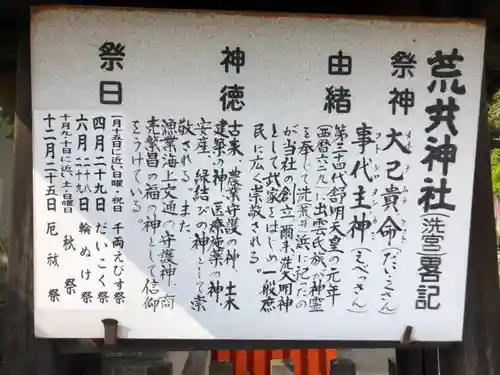 荒井神社(洗宮)畧記
祭神
大己貴命(だいこさん)
オオナムチノミコト
事代主神(えべっさん)
コトシロヌシノカミ
由緒
第三十四代舒明天皇の元年
(西暦六二九)に出雲氏族が神霊
を奉じて洗(荒井)浜に祀ったの
が当社の創立、爾来、洗大明神
として武家をはじめ一般庶
民に広く崇敬される。
神徳
古来、農業守護の神、土木
建築の神、医療施薬の神、
安産、縁結びの神として崇
敬される。また、
漁業海上交通の守護神、商
売繁昌の福の神として信仰
をうけている。
祭日
一月十五日に近い日曜・祝日 千両えびす祭
四月二十九日 だいこく祭
六月二十九日 輪ぬけ祭
十月九・十日に近い土・日曜日 秋祭
十二月二十五日 厄祓祭